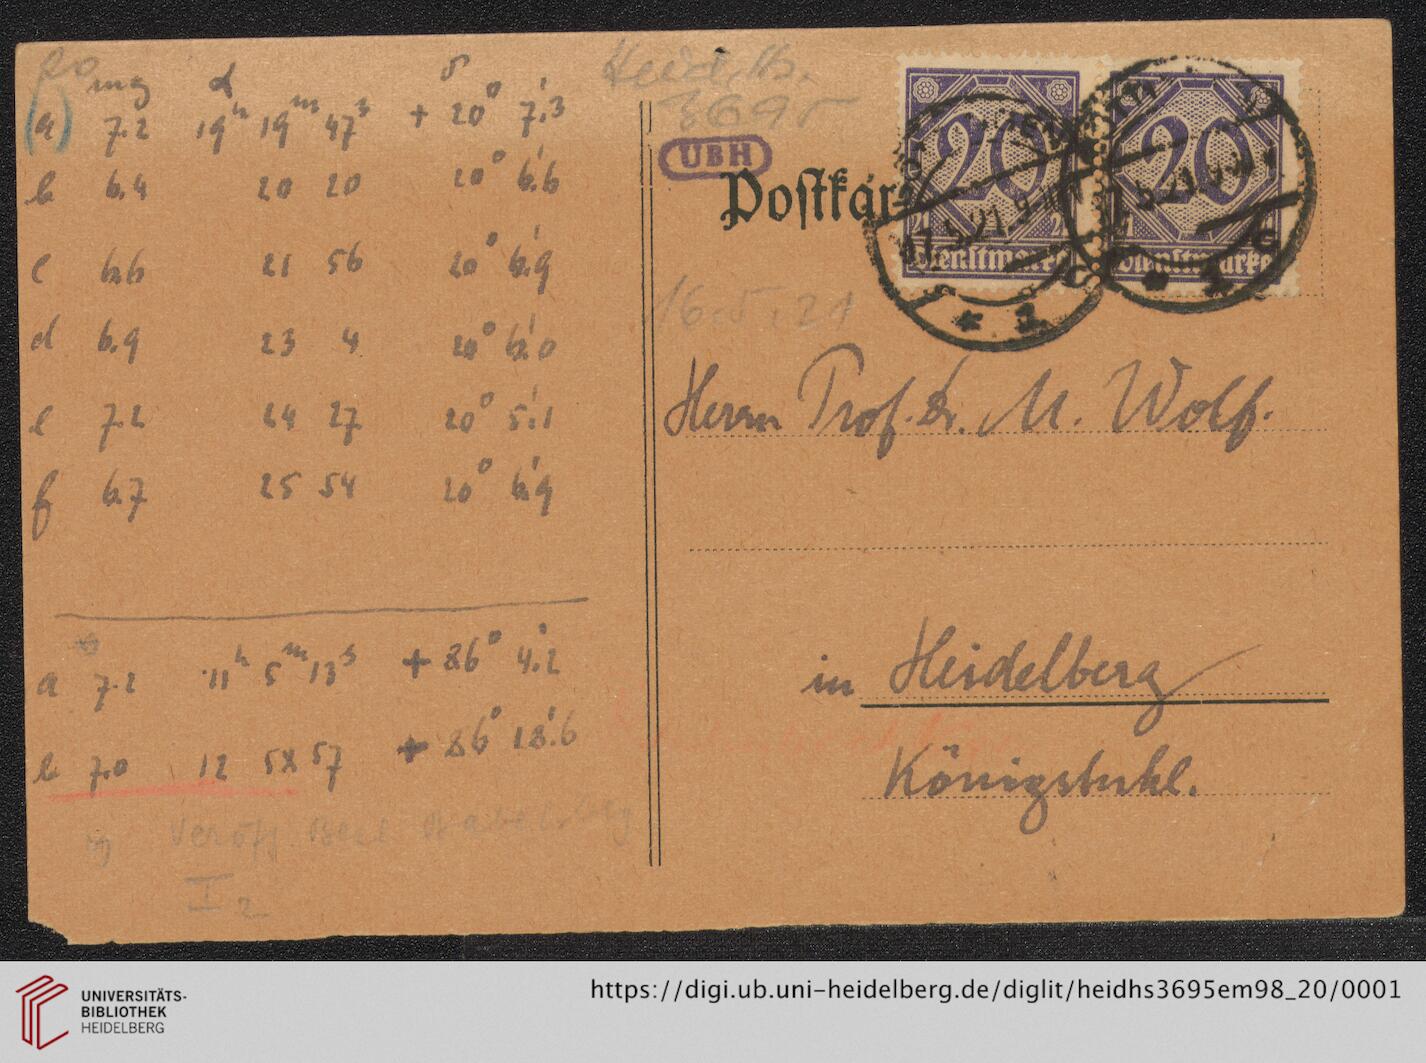 mg α δ
a) 7.2 19ʰ 19ᵐ 47ˢ + 20° 7.'3
b 6.4 20 20 20° 6.'6
c 6.6 21 56 20° 6.'9
d 6.9 23 4 20° 6.'0
e 7.2 24 27 20° 5.'1
f 6.7 25 54 20° 6.'9
a 7.2 11ʰ 5ᵐ 13ˢ + 86° 4.'2
b 7.0 12 58 57 + 86° 18.'6
Veröff. Babelsberg
I 2
Heid. Hs.
3695
UBH
Postkar
20 20
21 21
Dienstmarke Dienstmarke
17.5.21.9
16.5.21
Herrn Prof. Dr. M. Wolf.
in Heidelberg
Königstuhl.
UNIVERSITÄTS-
BIBLIOTHEK
HEIDELBERG
https://digi.ub.uni-heidelberg.de/diglit/heidhs3695em98_20/0001